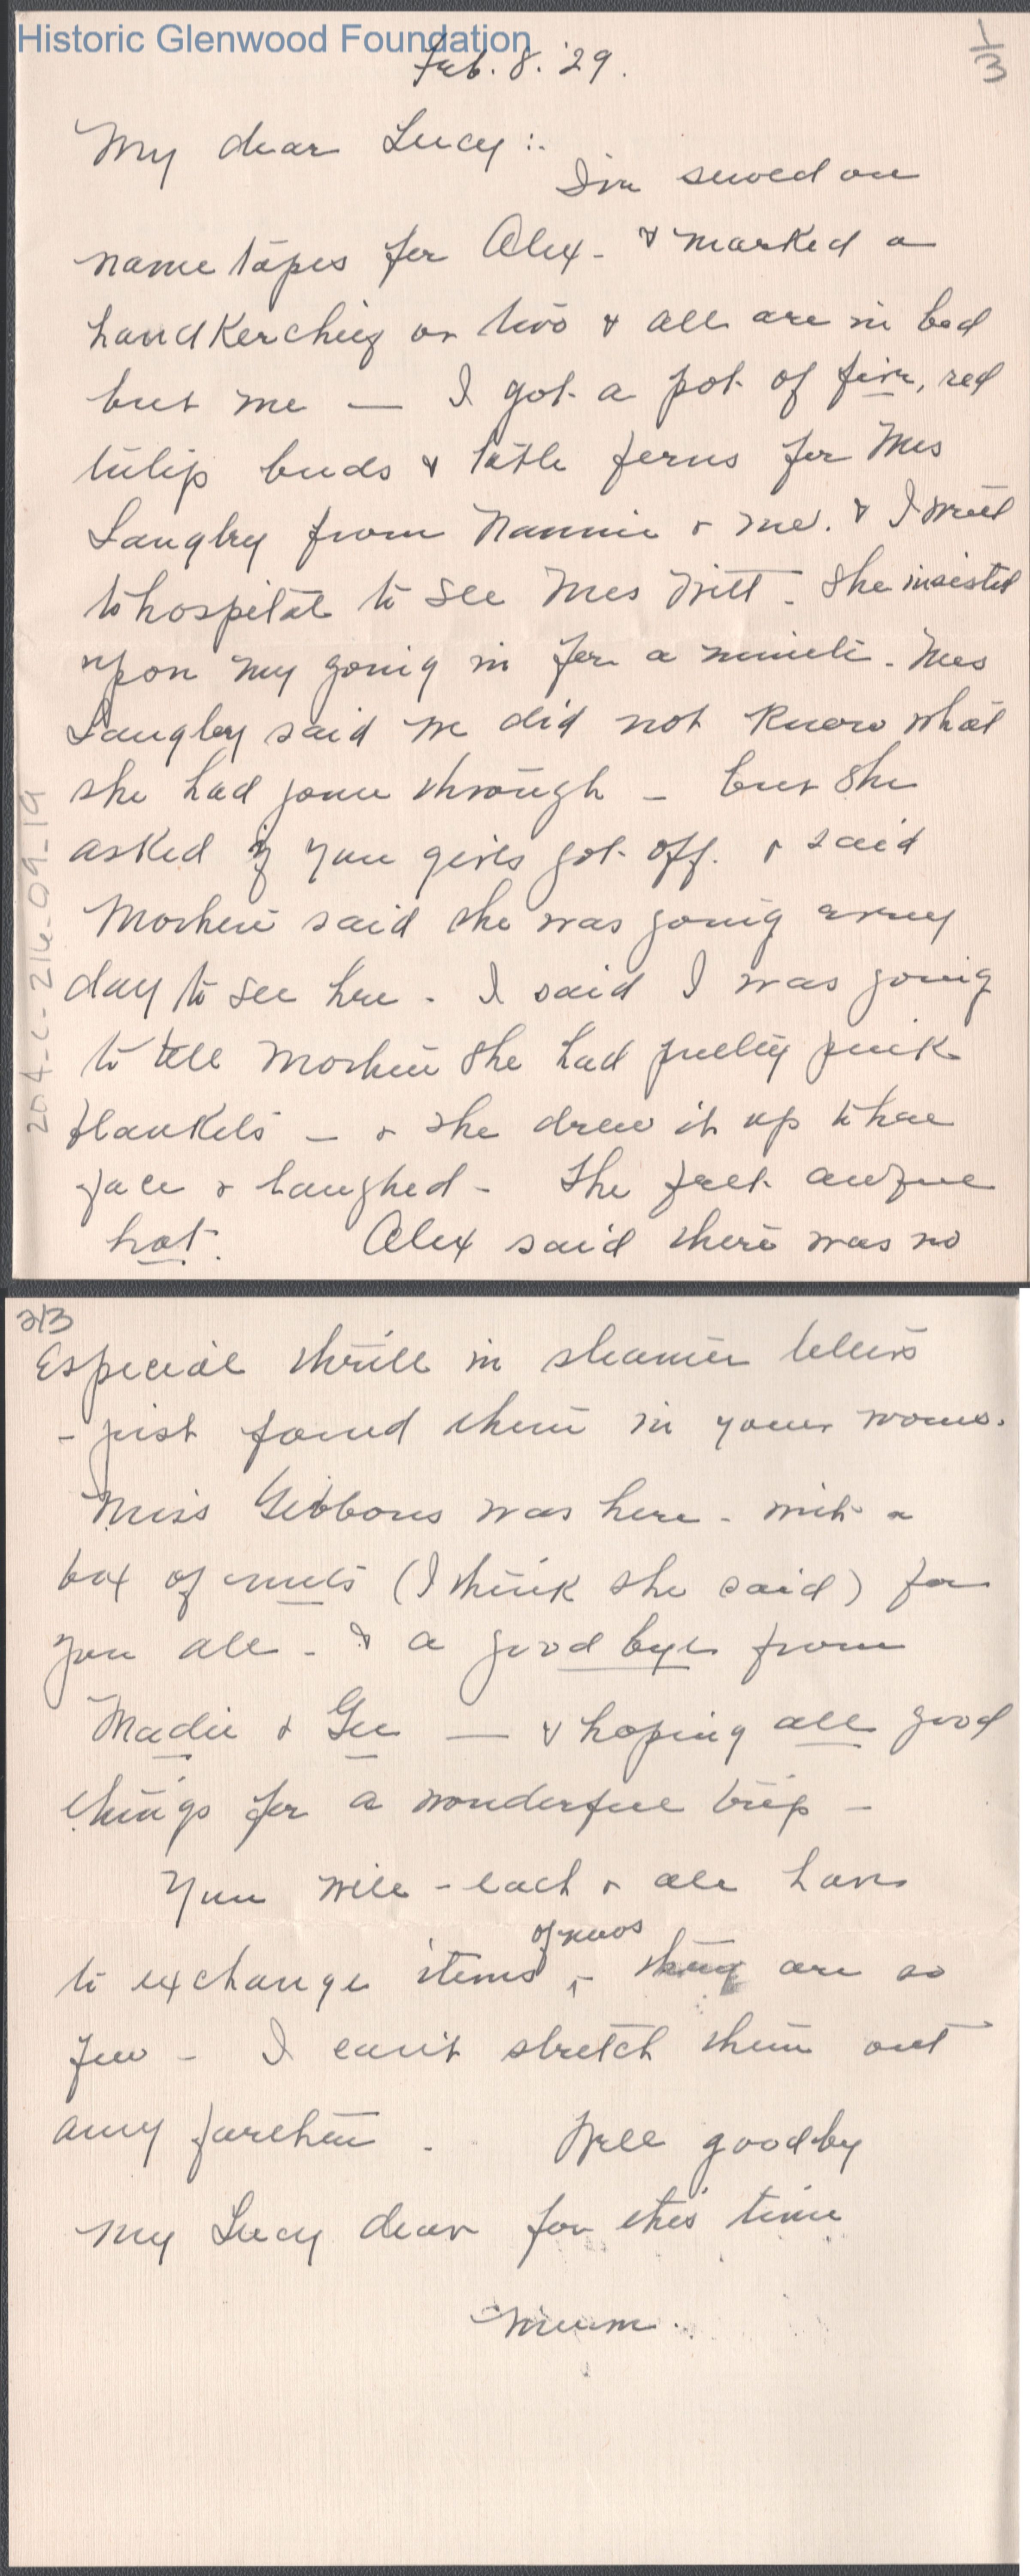 Historic Glenwood Foundation
Feb. 8. '29.
1/3
My dear Lucy :.
I've sewed on
name tapes for Alex - & marked a
handkerchief or two & all are in bed
but me — I got a pot of five, red
tulip buds & little ferns for Mrs
Langley from Nannie & me. & I went
to hospital to see Mrs Witt - She insisted
upon my going in for a minute - Mrs
Langley said we did not know what
she had gone through - but she
asked if you girls got off. & said
said she was going every
day to see her - I said I was going
to tell she had pretty pink
blankets - & she drew it up to her
face & laughed - She felt awful
hot. Alex said there was no
204-C-216-09-19
2/3
Especial thrill in steamer letters
- just found them in your rooms.
Miss Gibbons was here - with a
box of (I think she said) for
you all - & a good bye from
Madie & Gee — & hoping all good
things for a wonderful trip -
You will - each & all have
to exchange items of news - they are so
few - I can't stretch them out
any farther. Well goodby
my Lucy dear for this time
Mum.